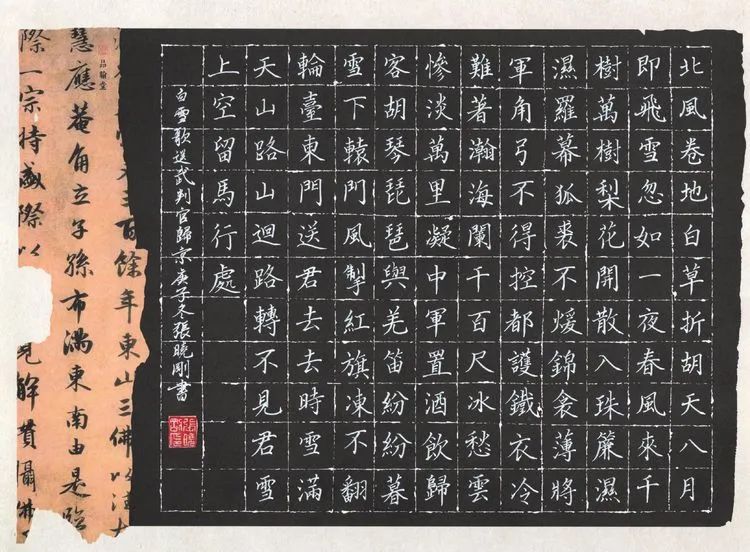 北風卷地白草折胡天八月
即飛雪忽如一夜春風來千
樹萬樹梨花開散入珠簾濕
濕羅幕狐裘不煖錦衾薄將
軍角弓不得控都護鐵衣冷
難著瀚海闌干百尺冰愁雲
慘淡萬里凝中軍置酒飲歸
客胡琴琵琶與羌笛紛紛暮
雪下轅門風掣紅旗凍不翻
輪臺東門送君去去時雪滿
天山路山迴路轉不見君雪
上空留馬行處
白雪歌送武判官歸京庚子冬張曉剛書
品翰堂
三百餘年東山三佛以法
慧應菴角立子孫布滿東南由是臨
際一宗特盛際以見解貫攝佛